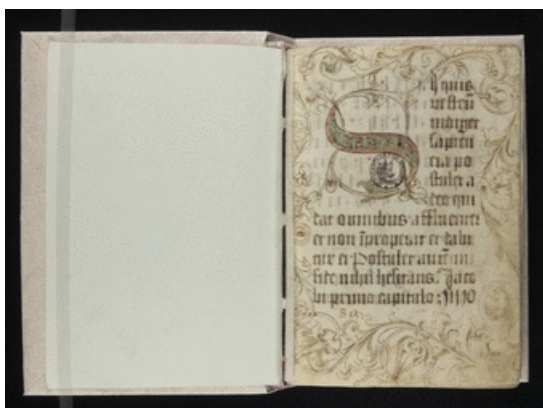 Si quis
vestrū
indiget
sapien
cia po
stulet a
deo qui
dat omnibus affluenter
et non īproperat et dabi
tur ei Postulet autē in
fide nihil hesitans. Jaco
bi primo capitulo